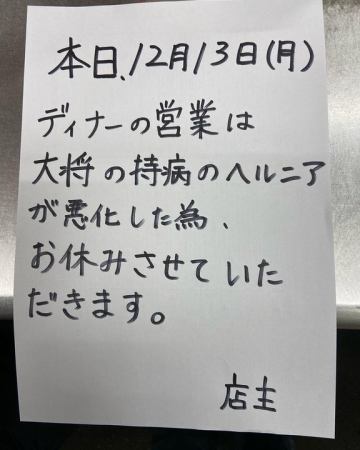 本日、12月13日(月)
ディナーの営業は
大将の持病のヘルニア
が悪化した為、
お休みさせていた
だきます。
店主